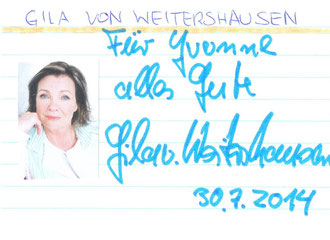 GILA VON WEITERSHAUSEN
Für Yvonne
alles Gute
Gila v. Weitershausen
30.7.2014